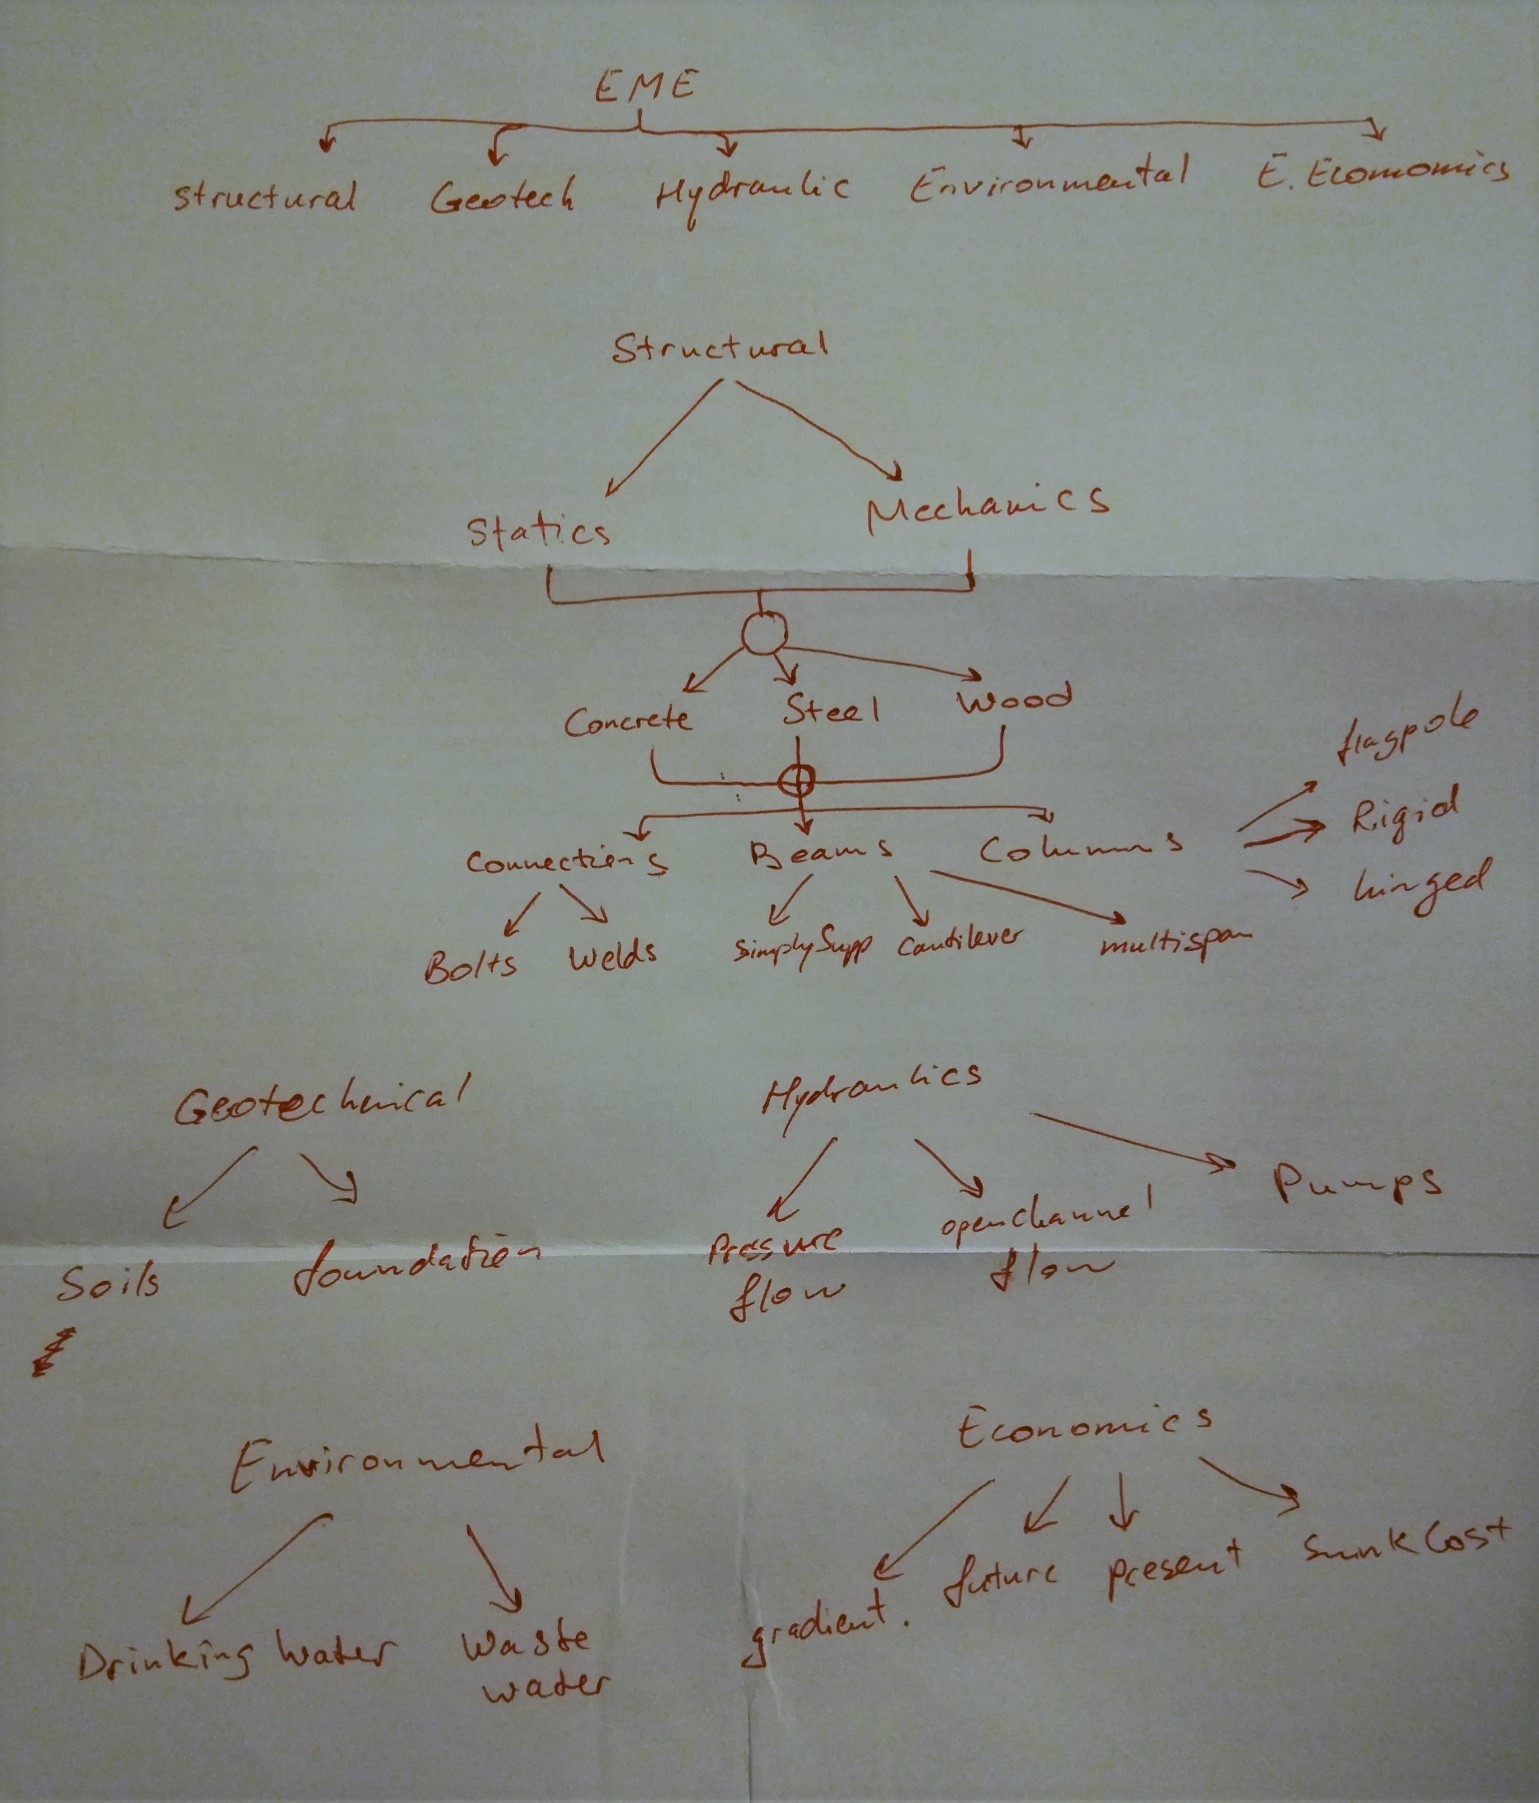 EME
Structural Geotech Hydraulic Environmental E. Economics
Structural
Statics Mechanics
Concrete Steel Wood
flagpole
Rigid
Connections Beams Columns
hinged
Bolts Welds SimplySupp Cantilever multispan
Geotechnical Hydraulics
Pumps
Soils foundation Pressure openchannel
flow flow
Environmental Economics
gradient. future present SunkCost
Drinking Water Waste
water